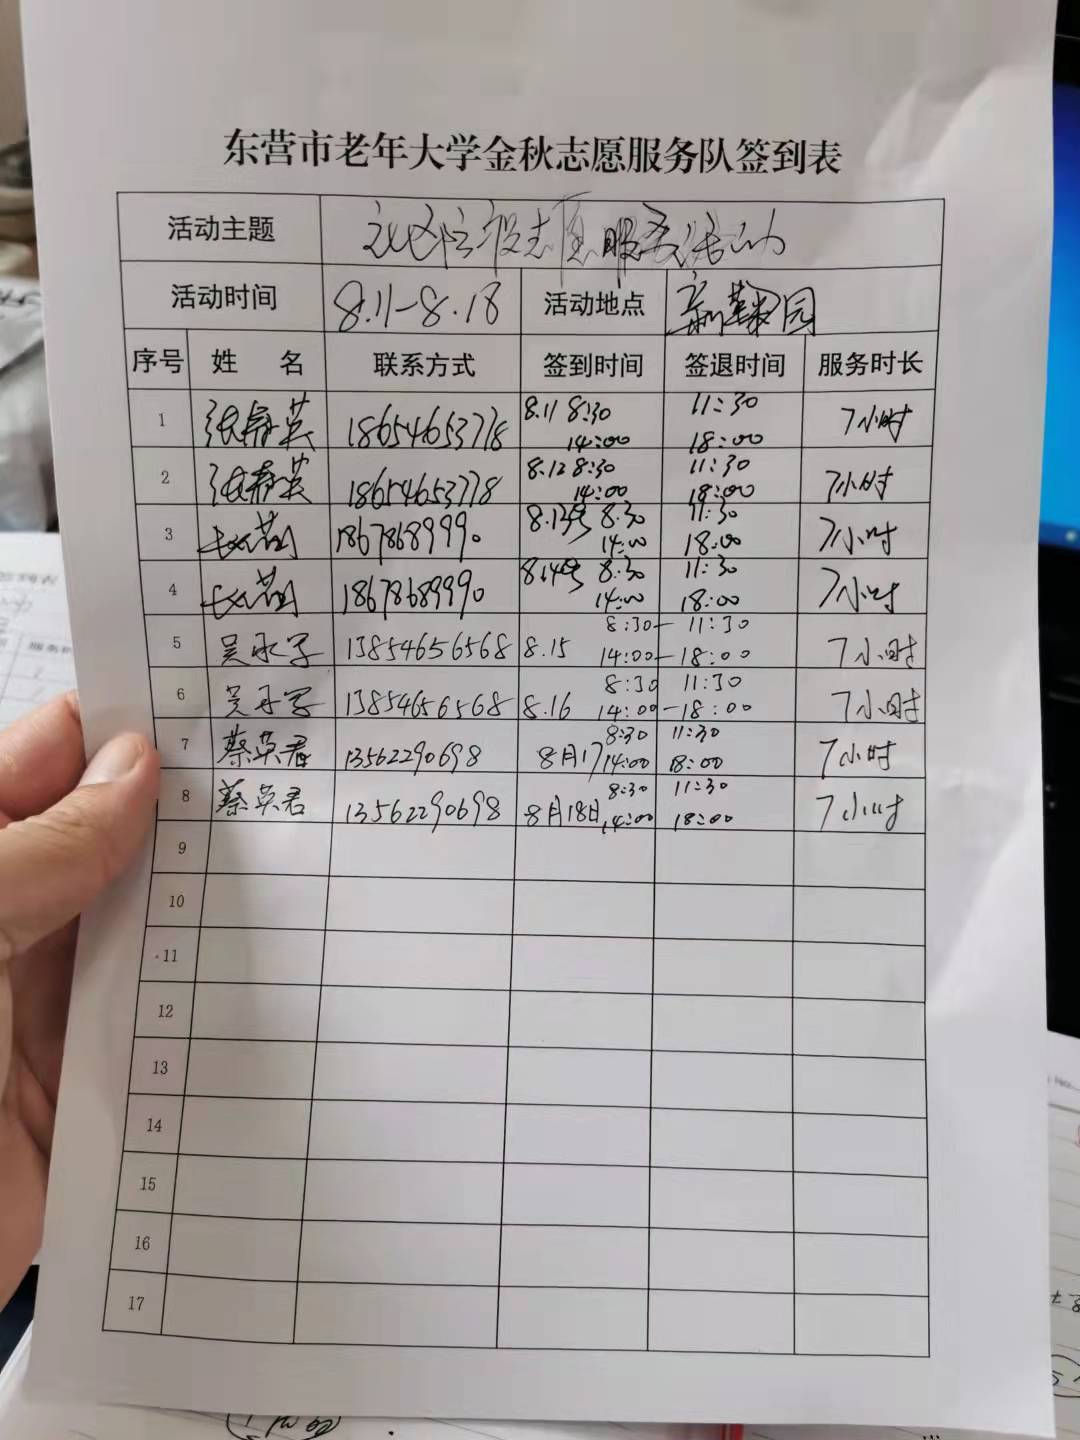 东营市老年大学金秋志愿服务队签到表
活动主题 社区 志愿服务活动
活动时间 8.11-8.18 活动地点 园
序号 姓 名 联系方式 签到时间 签退时间 服务时长
1 张 英 18654653778 8.11 8:30 11:30 7小时
14:00 18:00
2 张 英 18654653778 8.12 8:30 11:30 7小时
14:00 18:00
3 赵 18678689990 8.13号 8.30 11:30 7小时
14:00 18:00
4 赵 18678689990 8.14号 8.30 11:30 7小时
14:00 18:00
5 吴永 13854656568 8.15 8:30- 11:30 7小时
14:00-18:00
6 吴永 13854656568 8.16 8:30 11:30 7小时
14:00-18:00
7 蔡英君 13562290698 8月17 8:30 11:30 7小时
14:00 18:00
8 蔡英君 13562290698 8月18日 8:30 11:30 7小时
14:00 18:00
9
10
11
12
13
14
15
16
17